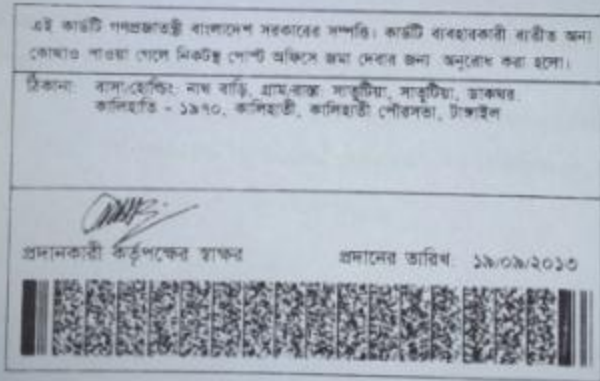 এই কার্ডটি গণপ্রজাতন্ত্রী বাংলাদেশ সরকারের সম্পত্তি। কার্ডটি ব্যবহারকারী ব্যতীত অন্য
কোথাও পাওয়া গেলে নিকটস্থ পোস্ট অফিসে জমা দেবার জন্য অনুরোধ করা হলো।
ঠিকানা: বাসা/হোল্ডিং: নাথ বাড়ি, গ্রাম/রাস্তা: সাতুটিয়া, সাতুটিয়া, ডাকঘর:
কালিহাতি - ১৯৭০, কালিহাতী, কালিহাতী পৌরসভা, টাঙ্গাইল
প্রদানকারী কর্তৃপক্ষের স্বাক্ষর প্রদানের তারিখ: ১৯/০৯/২০১৩